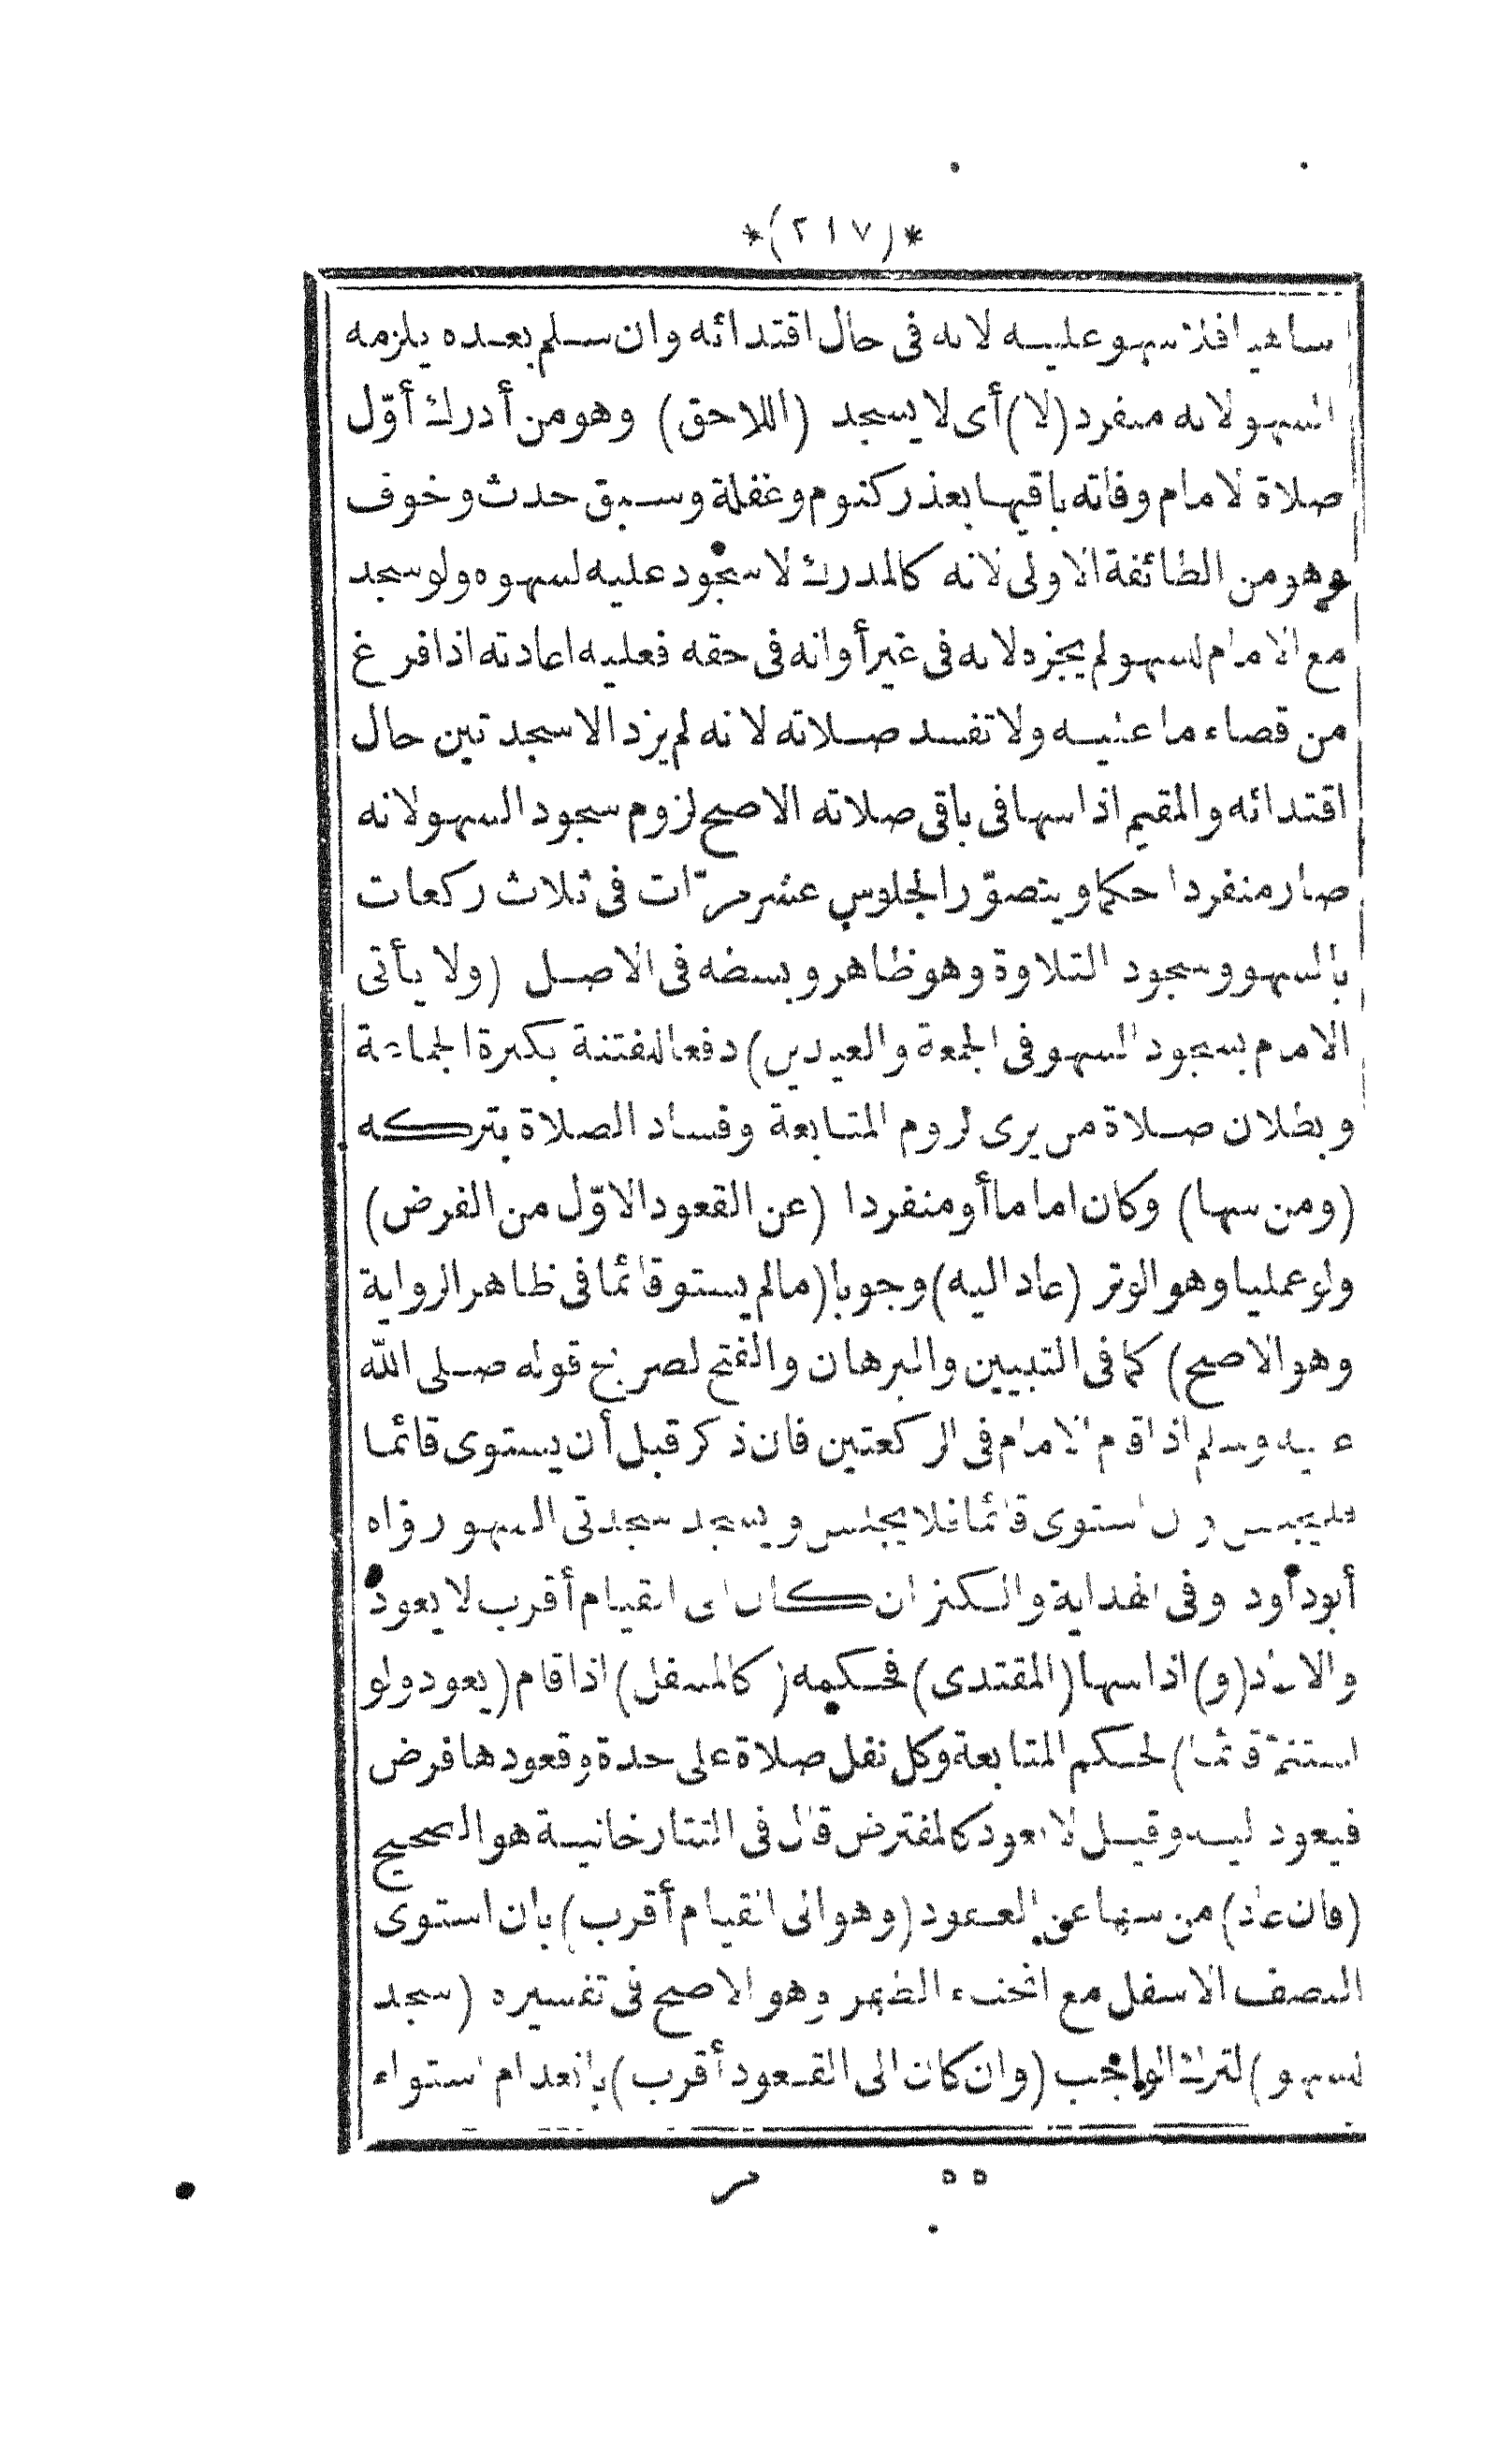 *(٢١٧)*
ساهيا فلا سهو عليه لانه فى حال اقتدائه وان سلم بعده يلزمه
السهو لانه منفرد (لا) أى لا يسجد (اللاحق) وهو من أدرك أوّل
صلاة الامام وفاته باقيها بعذر كنوم وغفلة وسبق حدث وخوف
وهو من الطائفة الاولى لانه كالمدرك لا سجود عليه لسهوه ولو سجد
مع الامام للسهو لم يجزه لانه فى غير أوانه فى حقه فعليه اعادته اذا فرغ
من قضاء ما عليه ولا تفسد صلاته لانه لم يزد الا سجدتين حال
اقتدائه والمقيم اذا سها فى باقى صلاته الاصح لزوم سجود السهو لانه
صار منفردا حكما ويتصوّر الجلوس عشر مرّات فى ثلاث ركعات
بالسهو وسجود التلاوة وهو ظاهر وبسطه فى الاصل (ولا يأتى
الامام بسجود السهو فى الجمعة والعيدين) دفعا للفتنة بكثرة الجماعة
وبطلان صلاة من يرى لزوم المتابعة وفساد الصلاة بتركه
(ومن سها) وكان اماما أو منفردا (عن القعود الاوّل من الفرض)
ولو عمليا وهو الوتر (عاد اليه) وجوبا (مالم يستو قائما فى ظاهر الرواية
وهو الاصح) كما فى التبيين والبرهان والفتح لصريح قوله صلى الله
عليه وسلم اذا قام الامام فى الركعتين فان ذكر قبل أن يستوى قائما
فليجلس وان استوى قائما فلا يجلس ويسجد سجدتى السهو رواه
أبو داود وفى الهداية والكنز ان كان الى القيام أقرب لا يعود
والا عاد (و) اذا سها (المقتدى) فحكمه (كالمتنفل) اذا قام (يعود ولو
استتم قائما) لحكم المتابعة وكل نفل صلاة على حدة وقعودها فرض
فيعود اليه وقيل لا يعود كالمفترض قال فى التتارخانية هو الصحيح
(فان عاد) من سها عن القعود (وهو الى القيام أقرب) بان استوى
النصف الاسفل مع انحناء الظهر وهو الاصح فى تفسيره (سجد
للسهو) لترك الواجب (وان كان الى القعود أقرب) بانعدام استواء
٥٥ مر